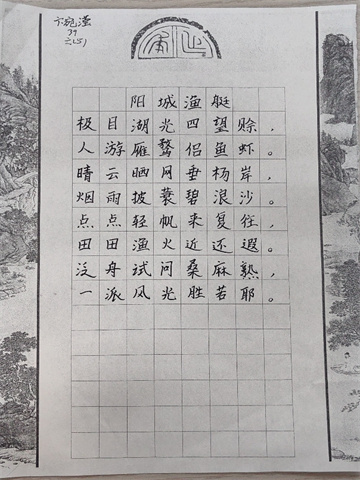 卞宛滢
39
六(5)
阳城渔艇
极目湖光四望赊，
人游雁鹜侣鱼虾。
晴云晒网垂杨岸，
烟雨披蓑碧浪沙。
点点轻帆来复往，
田田渔火近还遐。
泛舟试问桑麻熟，
一派风光胜若耶。